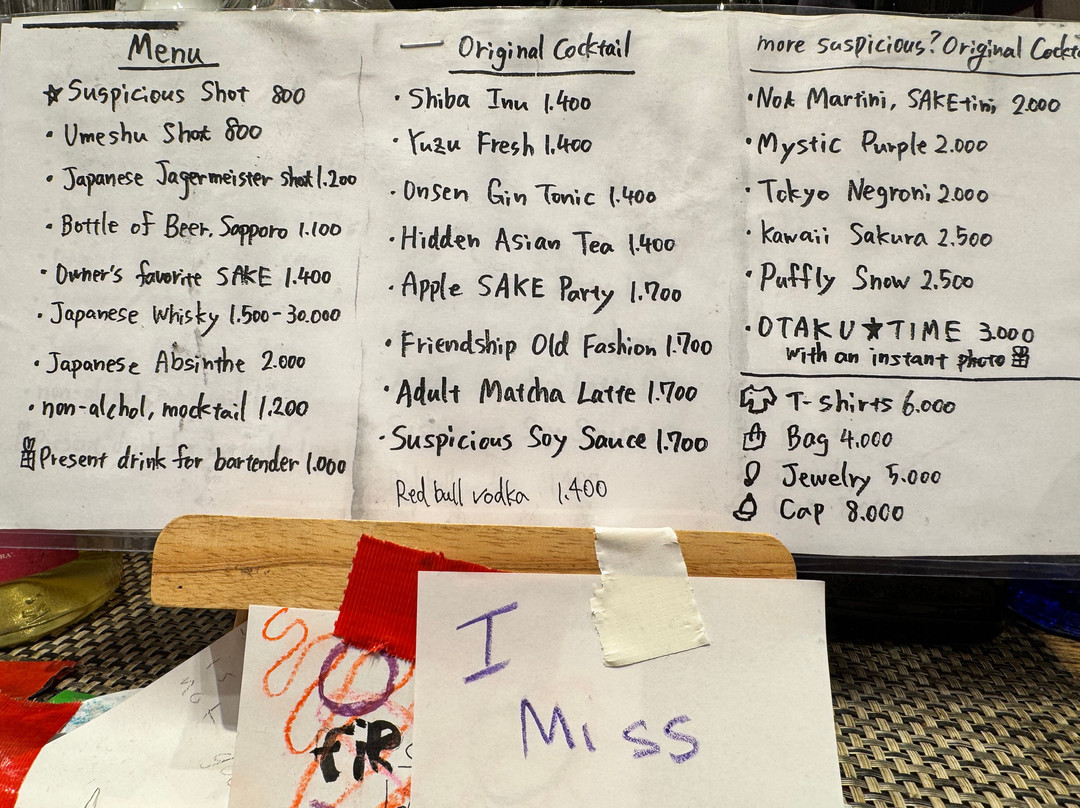 Menu
★Suspicious Shot 800
・Umeshu Shot 800
・Japanese Jagermeister shot 1.200
・Bottle of Beer, Sapporo 1.100
・Owner's favorite SAKE 1.400
・Japanese Whisky 1.500-30.000
・Japanese Absinthe 2.000
・non-alchol, mocktail 1.200
Present drink for bartender 1.000
Original Cocktail
・Shiba Inu 1.400
・Yuzu Fresh 1.400
・Onsen Gin Tonic 1.400
・Hidden Asian Tea 1.400
・Apple SAKE Party 1.700
・Friendship Old Fashion 1.700
・Adult Matcha Latte 1.700
・Suspicious Soy Sauce 1.700
Red bull vodka 1.400
more suspicious? Original Cockta
・Not Martini, SAKE+ini 2.000
・Mystic Purple 2.000
・Tokyo Negroni 2.000
・Kawaii Sakura 2.500
・Puffly Snow 2.500
・OTAKU★TIME 3.000
with an instant photo
T-shirts 6.000
Bag 4.000
Jewelry 5.000
Cap 8.000
I
Miss